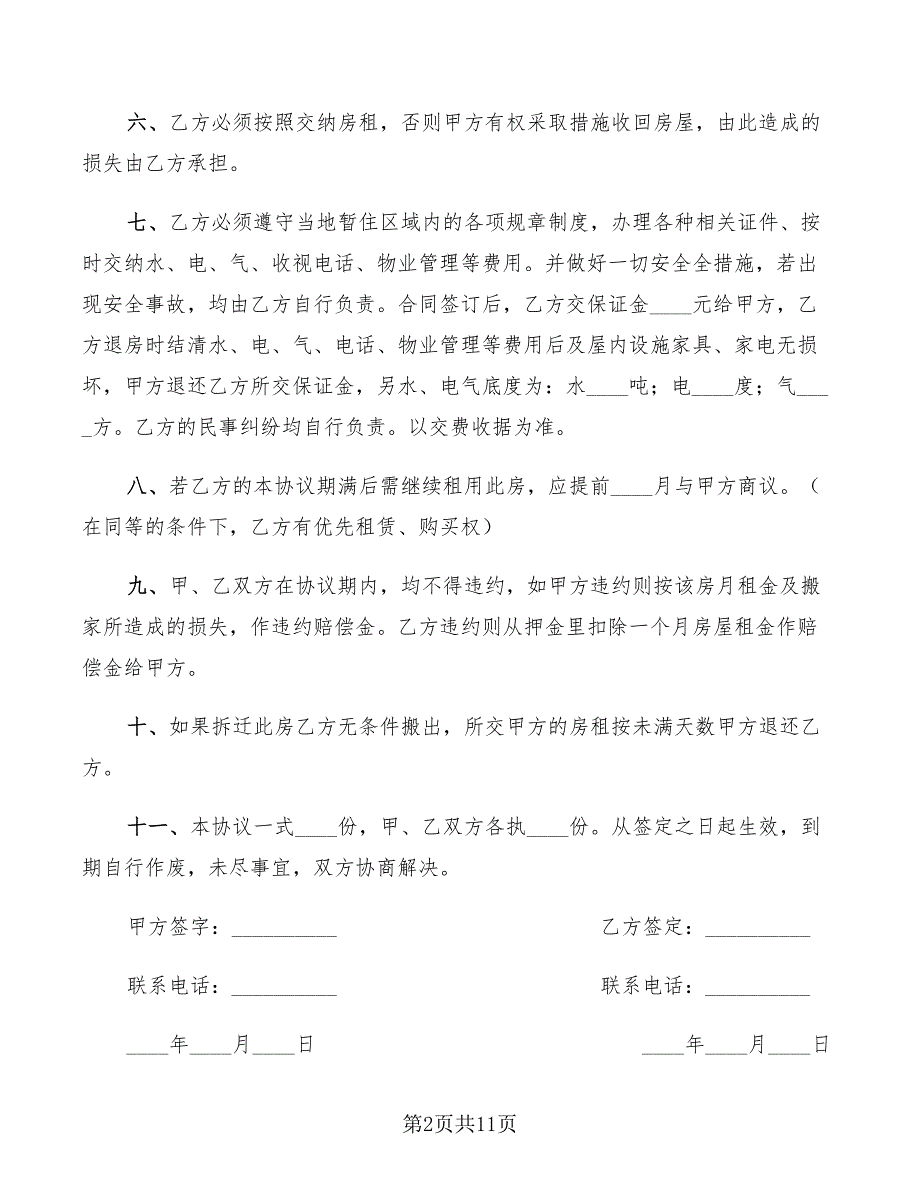 六、乙方必须按照交纳房租，否则甲方有权采取措施收回房屋，由此造成的
损失由乙方承担。
七、乙方必须遵守当地暂住区域内的各项规章制度，办理各种相关证件、按
时交纳水、电、气、收视电话、物业管理等费用。并做好一切安全全措施，若出
现安全事故，均由乙方自行负责。合同签订后，乙方交保证金____元给甲方，乙
方退房时结清水、电、气、电话、物业管理等费用后及屋内设施家具、家电无损
坏，甲方退还乙方所交保证金，另水、电气底度为：水____吨；电____度；气___
_方。乙方的民事纠纷均自行负责。以交费收据为准。
八、若乙方的本协议期满后需继续租用此房，应提前____月与甲方商议。（
在同等的条件下，乙方有优先租赁、购买权）
九、甲、乙双方在协议期内，均不得违约，如甲方违约则按该房月租金及搬
家所造成的损失，作违约赔偿金。乙方违约则从押金里扣除一个月房屋租金作赔
偿金给甲方。
十、如果拆迁此房乙方无条件搬出，所交甲方的房租按未满天数甲方退还乙
方。
十一、本协议一式____份，甲、乙双方各执____份。从签定之日起生效，到
期自行作废，未尽事宜，双方协商解决。
甲方签字：__________ 乙方签定：__________
联系电话：__________ 联系电话：__________
____年____月____日 ____年____月____日
第2页共11页